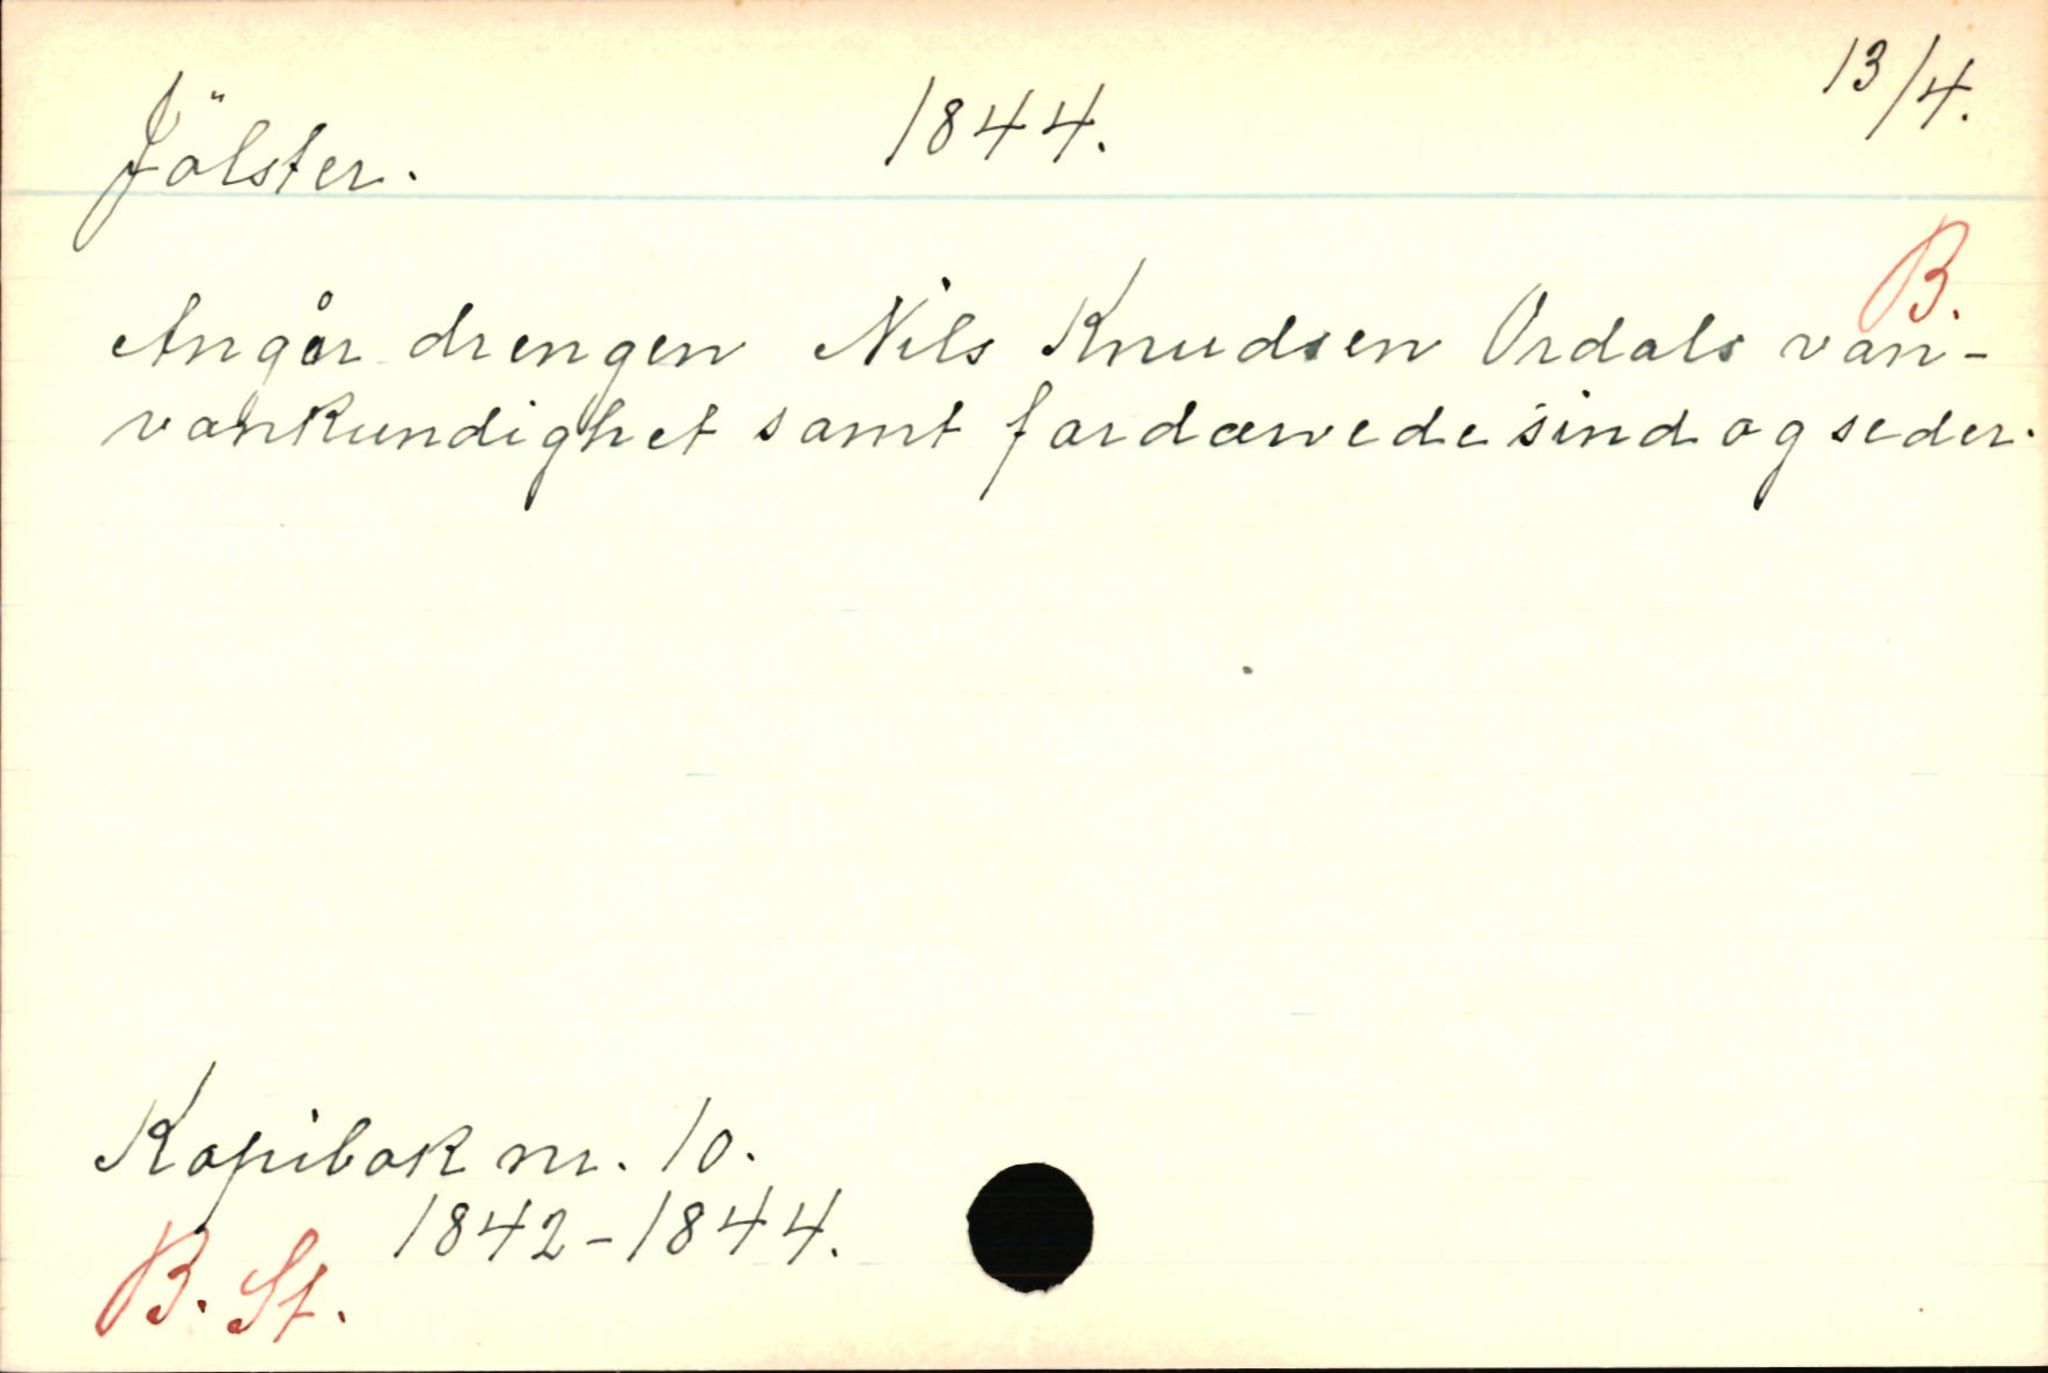 Jölster. 1844. 13/4.
B.
Angår drengen Nils Knudsen Ordals van-
vankundighet samt fordærvede sind og seder.
Kopibok nr. 10.
1842-1844.
B. St.